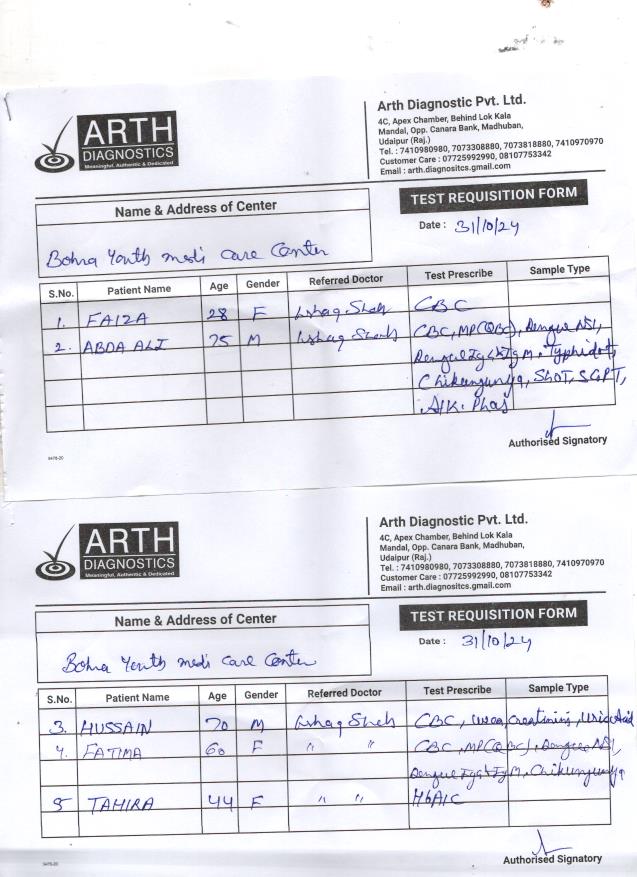 ARTH
DIAGNOSTICS
Meaningful, Authentic & Dedicated
Arth Diagnostic Pvt. Ltd.
4C, Apex Chamber, Behind Lok Kala
Mandal, Opp. Canara Bank, Madhuban,
Udaipur (Raj.)
Tel. : 7410980980, 7073308880, 7073818880, 7410970970
Customer Care : 07725992990, 08107753342
Email : arth.diagnositcs.gmail.com
Name & Address of Center
TEST REQUISITION FORM
Date : 31/10/24
Bohra Youth medi care Center
S.No. Patient Name Age Gender Referred Doctor Test Prescribe Sample Type
1. FAIZA 28 F Ishaq Shah CBC
2. ABDA ALI 75 M Ishaq Shah CBC, MP(QBC), Dengue NS1,
Dengue IgG & IgM, Typhidot,
Chikungunya, SGOT, SGPT,
Alk. Phos
Authorised Signatory
9476-20
ARTH
DIAGNOSTICS
Meaningful, Authentic & Dedicated
Arth Diagnostic Pvt. Ltd.
4C, Apex Chamber, Behind Lok Kala
Mandal, Opp. Canara Bank, Madhuban,
Udaipur (Raj.)
Tel. : 7410980980, 7073308880, 7073818880, 7410970970
Customer Care : 07725992990, 08107753342
Email : arth.diagnositcs.gmail.com
Name & Address of Center
TEST REQUISITION FORM
Date : 31/10/24
Bohra Youth medi care Center
S.No. Patient Name Age Gender Referred Doctor Test Prescribe Sample Type
3. HUSSAIN 70 M Ishaq Shah CBC, Urea, Creatinine, Uric Acid
4. FATIMA 60 F " " CBC, MP(QBC), Dengue NS1,
Dengue IgG & IgM, Chikungunya
5 TAHIRA 44 F " " HbA1C
Authorised Signatory
9476-20